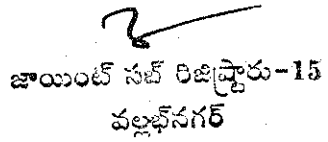 జాయింట్ సబ్ రిజిష్ట్రారు-15
వల్లభ్‌నగర్